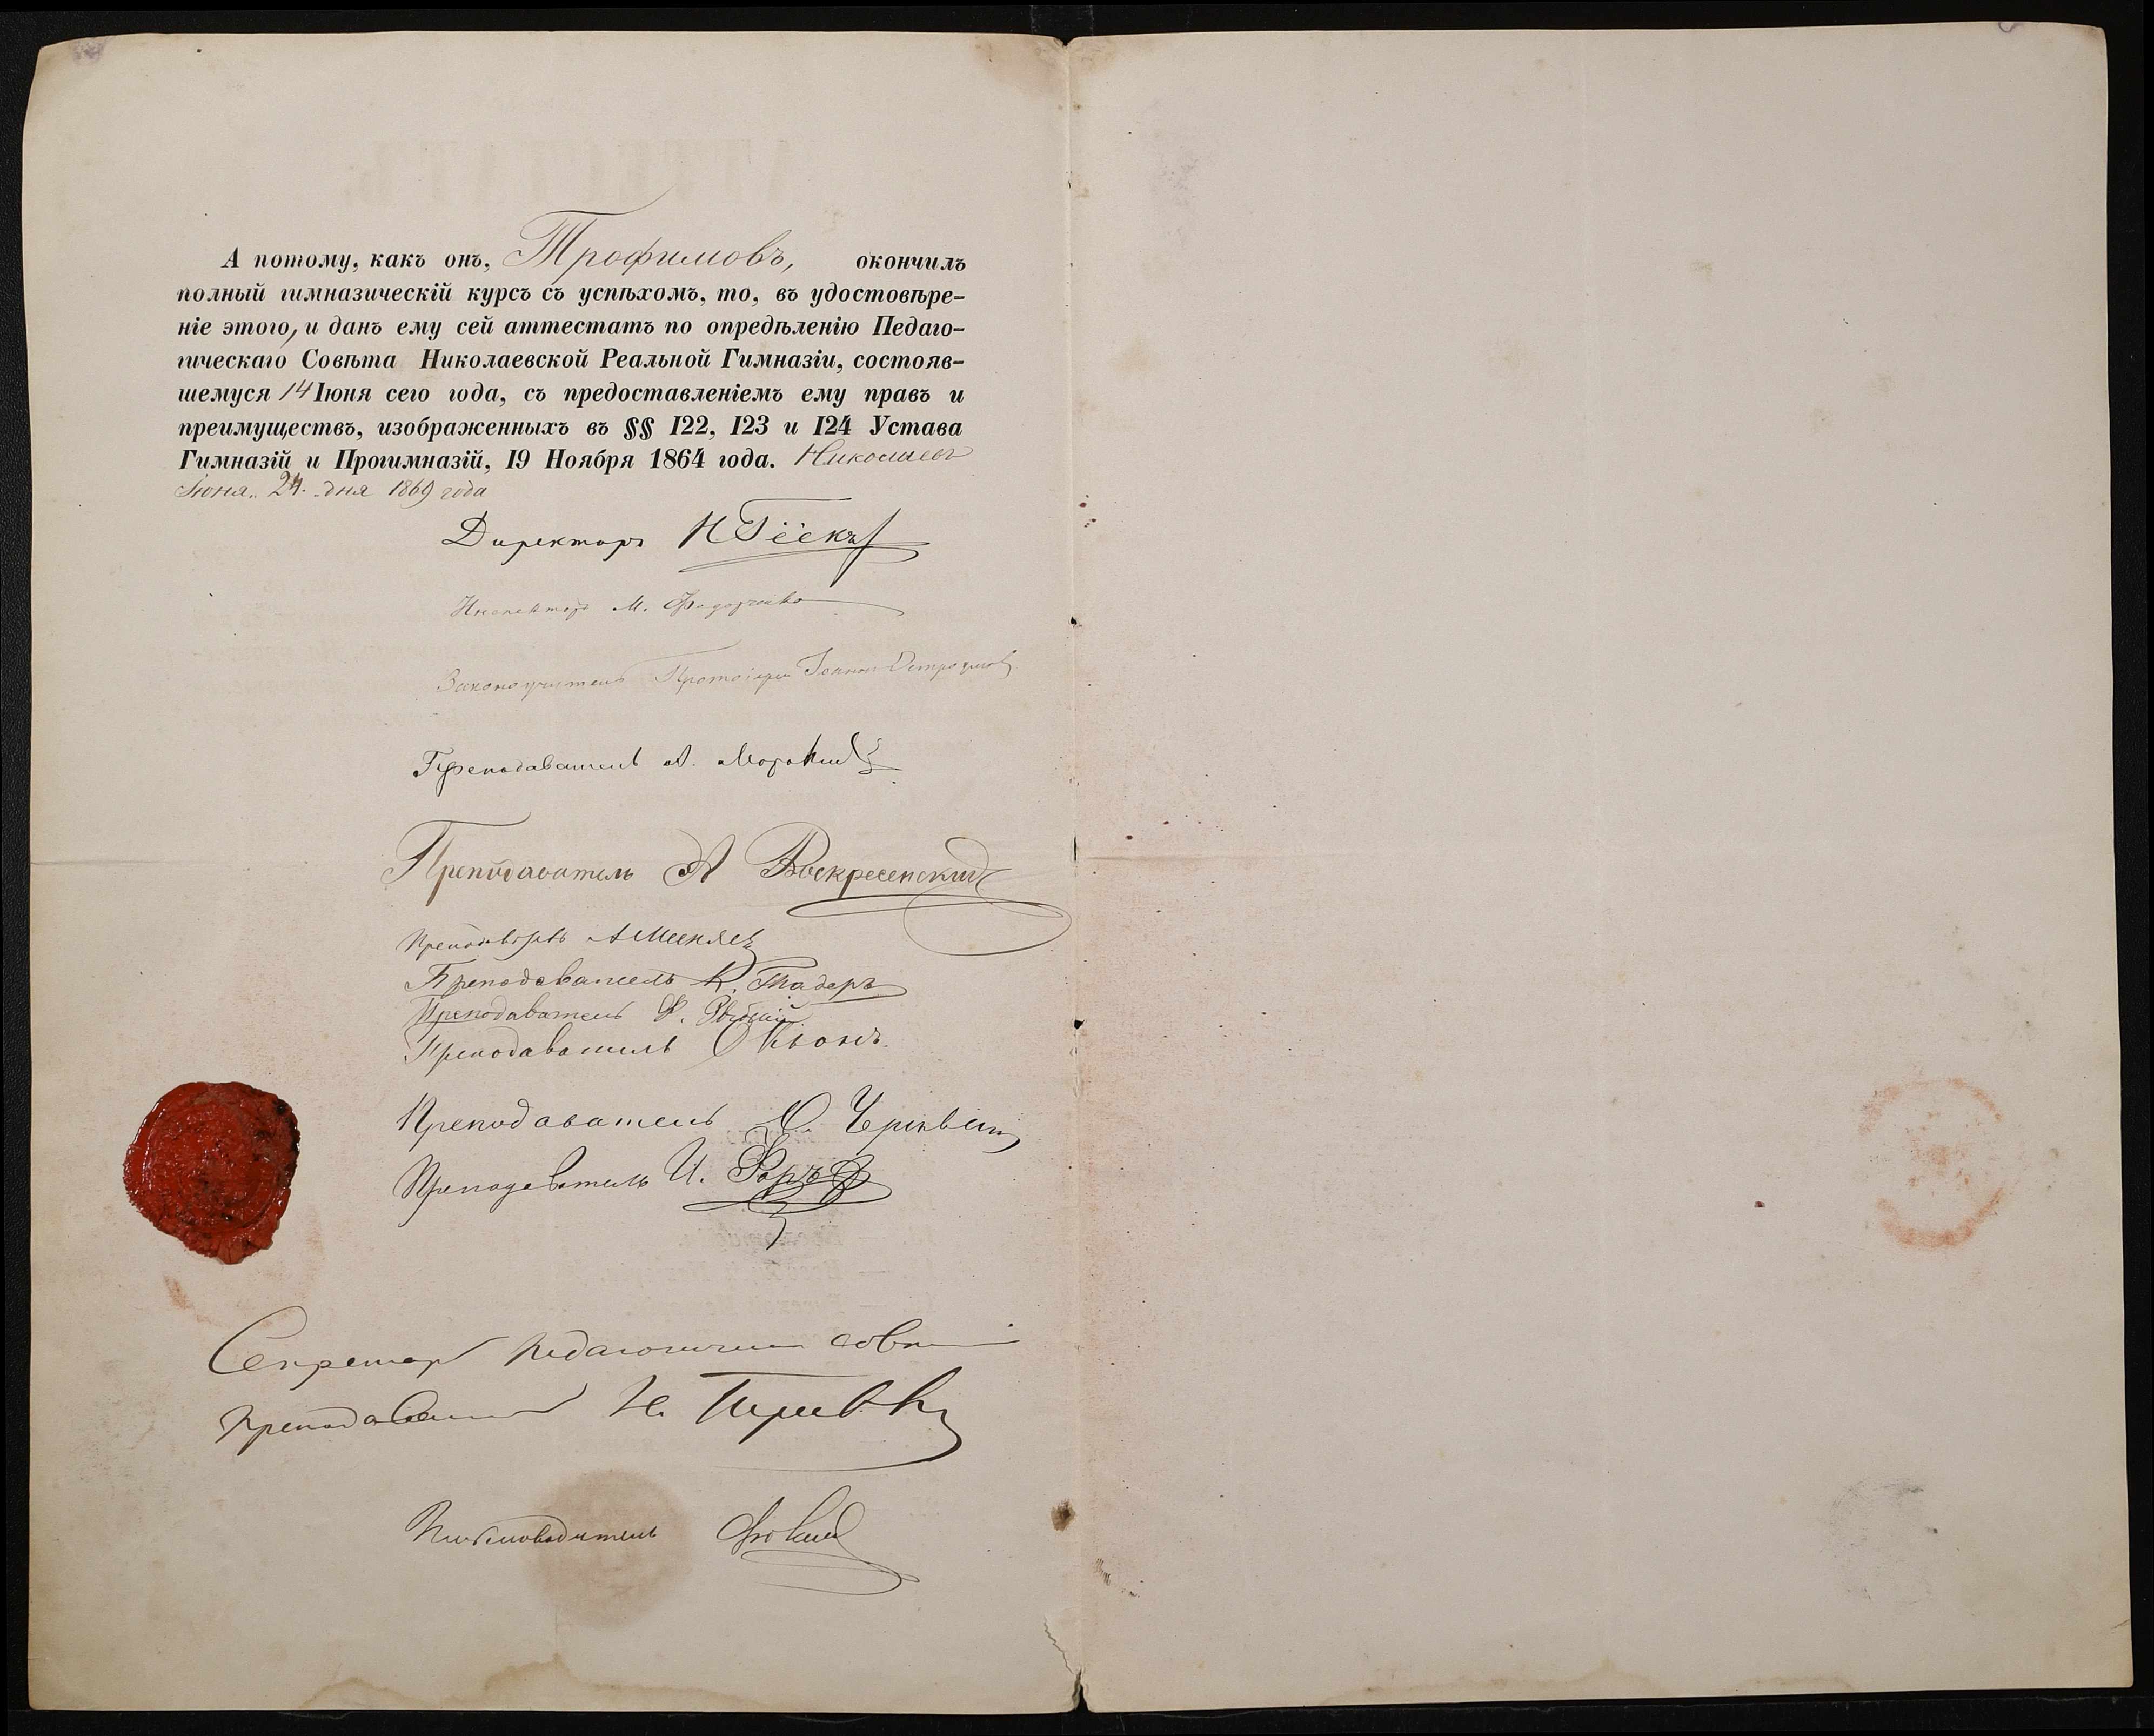 А потому, какъ онъ, Трофимовъ, окончилъ
полный гимназическій курсъ съ успѣхомъ, то, въ удостовѣре-
ніе этого, и данъ ему сей аттестатъ по опредѣленію Педаго-
гическаго Совѣта Николаевской Реальной Гимназіи, состояв-
шемуся 14 Іюня сего года, съ предоставленіемъ ему правъ и
преимуществъ, изображенныхъ въ §§ 122, 123 и 124 Устава
Гимназій и Прогимназій, 19 Ноября 1864 года. Николаевъ
Іюня 24 дня 1869 года
Директоръ Н
Инспекторъ М. Федорченко
Законоучитель Протоіерей Іоаннъ
Преподаватель А.
Преподаватель А Воскресенскій
Преподаватель А
Преподаватель К. Тадеръ
Преподаватель Ф.
Преподаватель О Кюнъ.
Преподаватель
Преподаватель И.
Секретарь педагогическ совѣта
преподаватель Н.
Письмоводитель